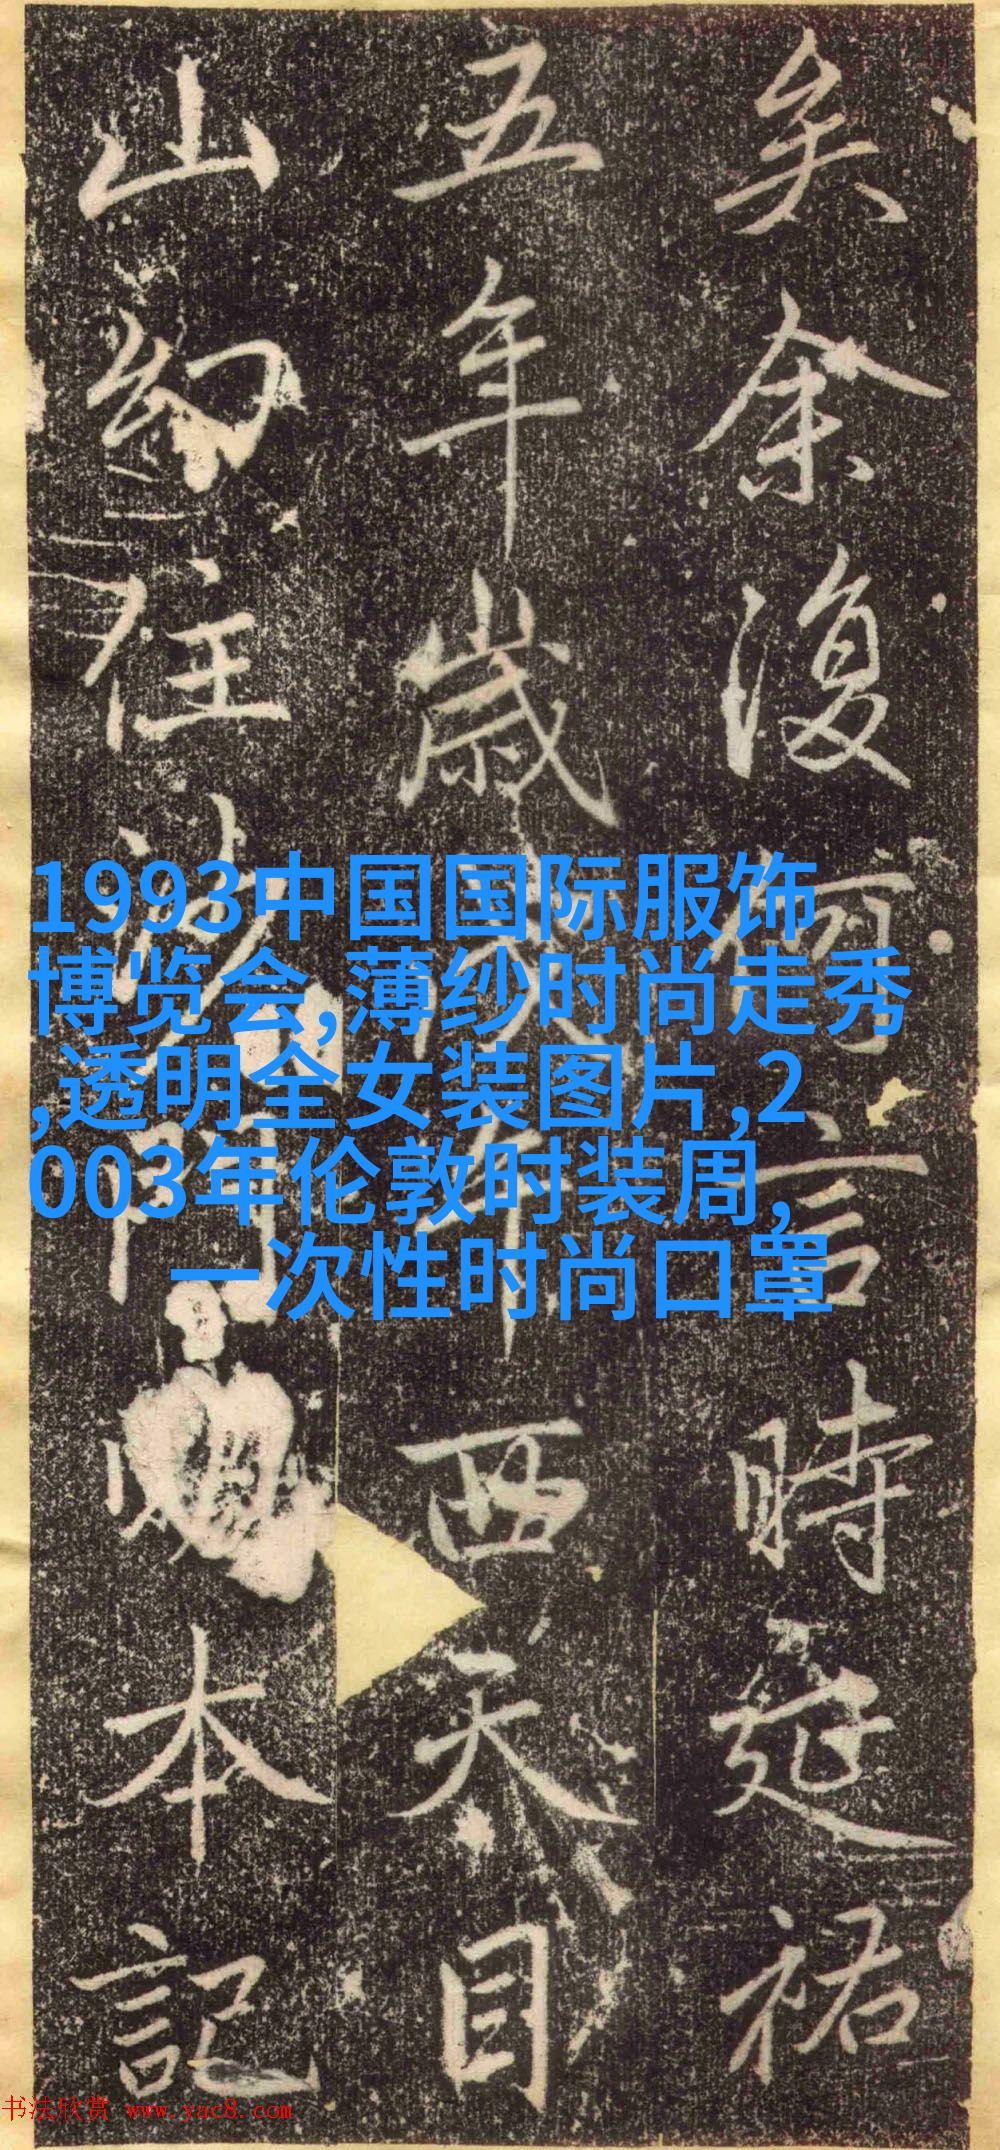 矣余復何言時延祐
五年歲戊午西天目
山幻住沙門明本記
1993中国国际服饰
博览会,薄纱时尚走秀
,透明全女装图片,2
003年伦敦时装周,
一次性时尚口罩
书法欣赏 www.yac8.com